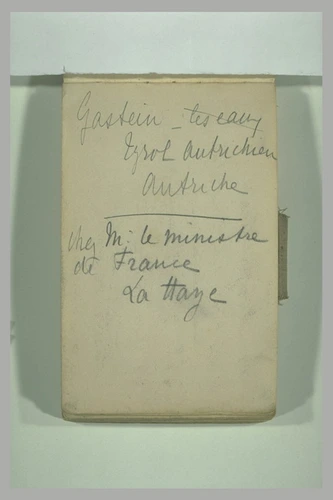 Gastein - les eaux
Tyrol Autrichien
Autriche
chez M: le ministre
de France
La Haye